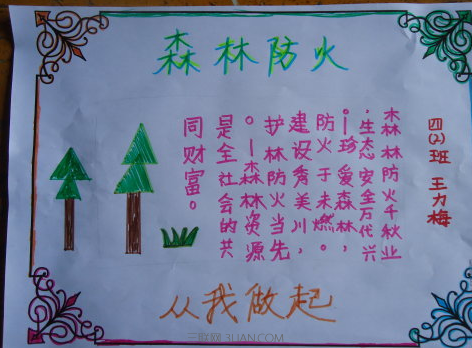 森林防火
四(2)班 王力梅
森林防火千秋业
，生态安全万代兴
。—珍爱森林，
防火于未燃。
建设秀美川，
护林防火当先
。—森林资源
是全社会的共
同财富。
从我做起
三联网 3LIAN.COM